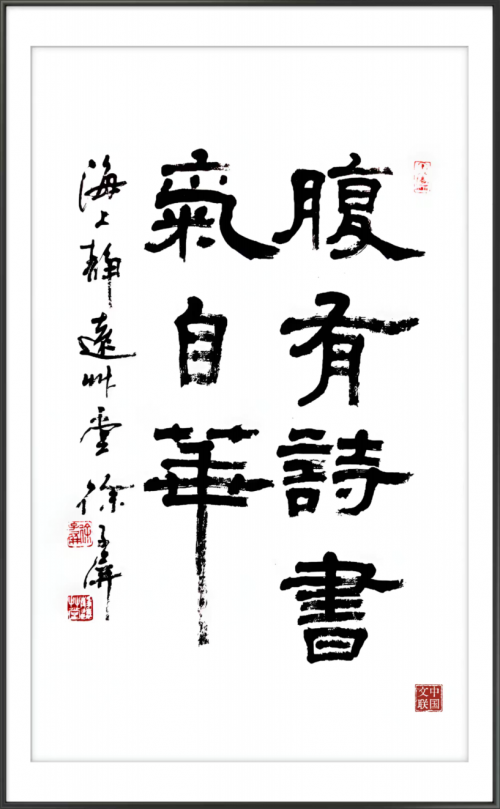 腹有詩書
氣自華
海上靜遠艸堂徐
中国文联